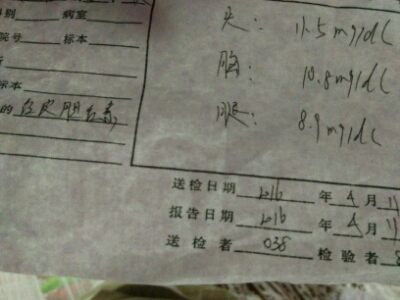 别 病室
院号 标本
标本
的 经皮胆红素
头: 11.5mg/dL
胸: 10.8mg/dL
腿: 8.9mg/dL
送检日期 2016 年 4 月 11
报告日期 2016 年 4 月 11
送检者 038 检验者